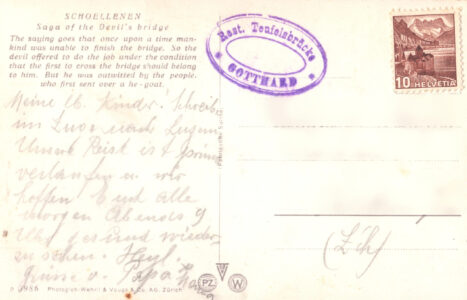 SCHOELLENEN
Saga of the Devil's bridge
The saying goes that once upon a time man-
kind was unable to finish the bridge. So the
devil offered to do the job under the condition
that the first to cross the bridge should belong
to him. But he was outwitted by the people,
who first sent over a he-goat.
Rest. Teufelsbrücke
GOTTHARD
10 HELVETIA
Meine lb. Kinder! Schreib
im Zuge nach Luzern
Unsere Reise ist prima
verlaufen u. wir
hoffen Euch alle
morgen Abends 9
Uhr gesund wieder-
zusehen.
Grüsse v. Papa
(Zch)
Photoglob-Wehrli & Vouga & Co. AG. Zürich
PZ W